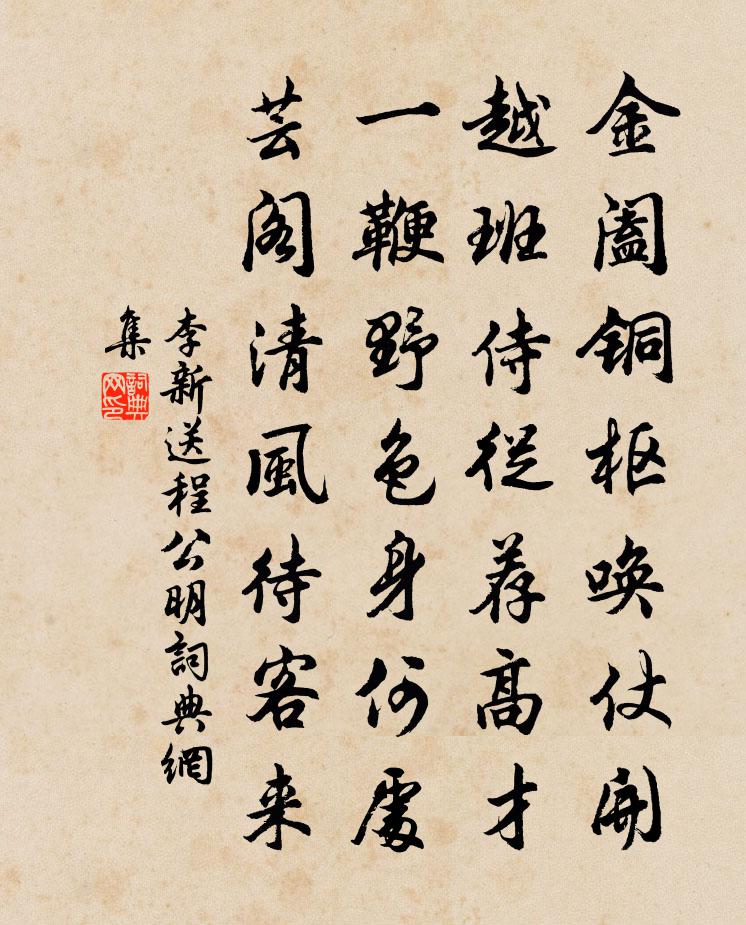 金阖铜枢唤仗開
越班侍從荐高才
一鞭野色身何處
芸阁清風待客来
李新送程公明詞典網
集
詞典
网印